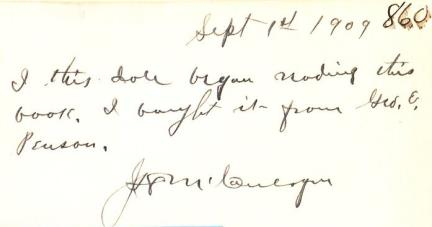 Sept 1st 1909 860
I this date began reading this
book. I bought it from Geo. E.
Penson.